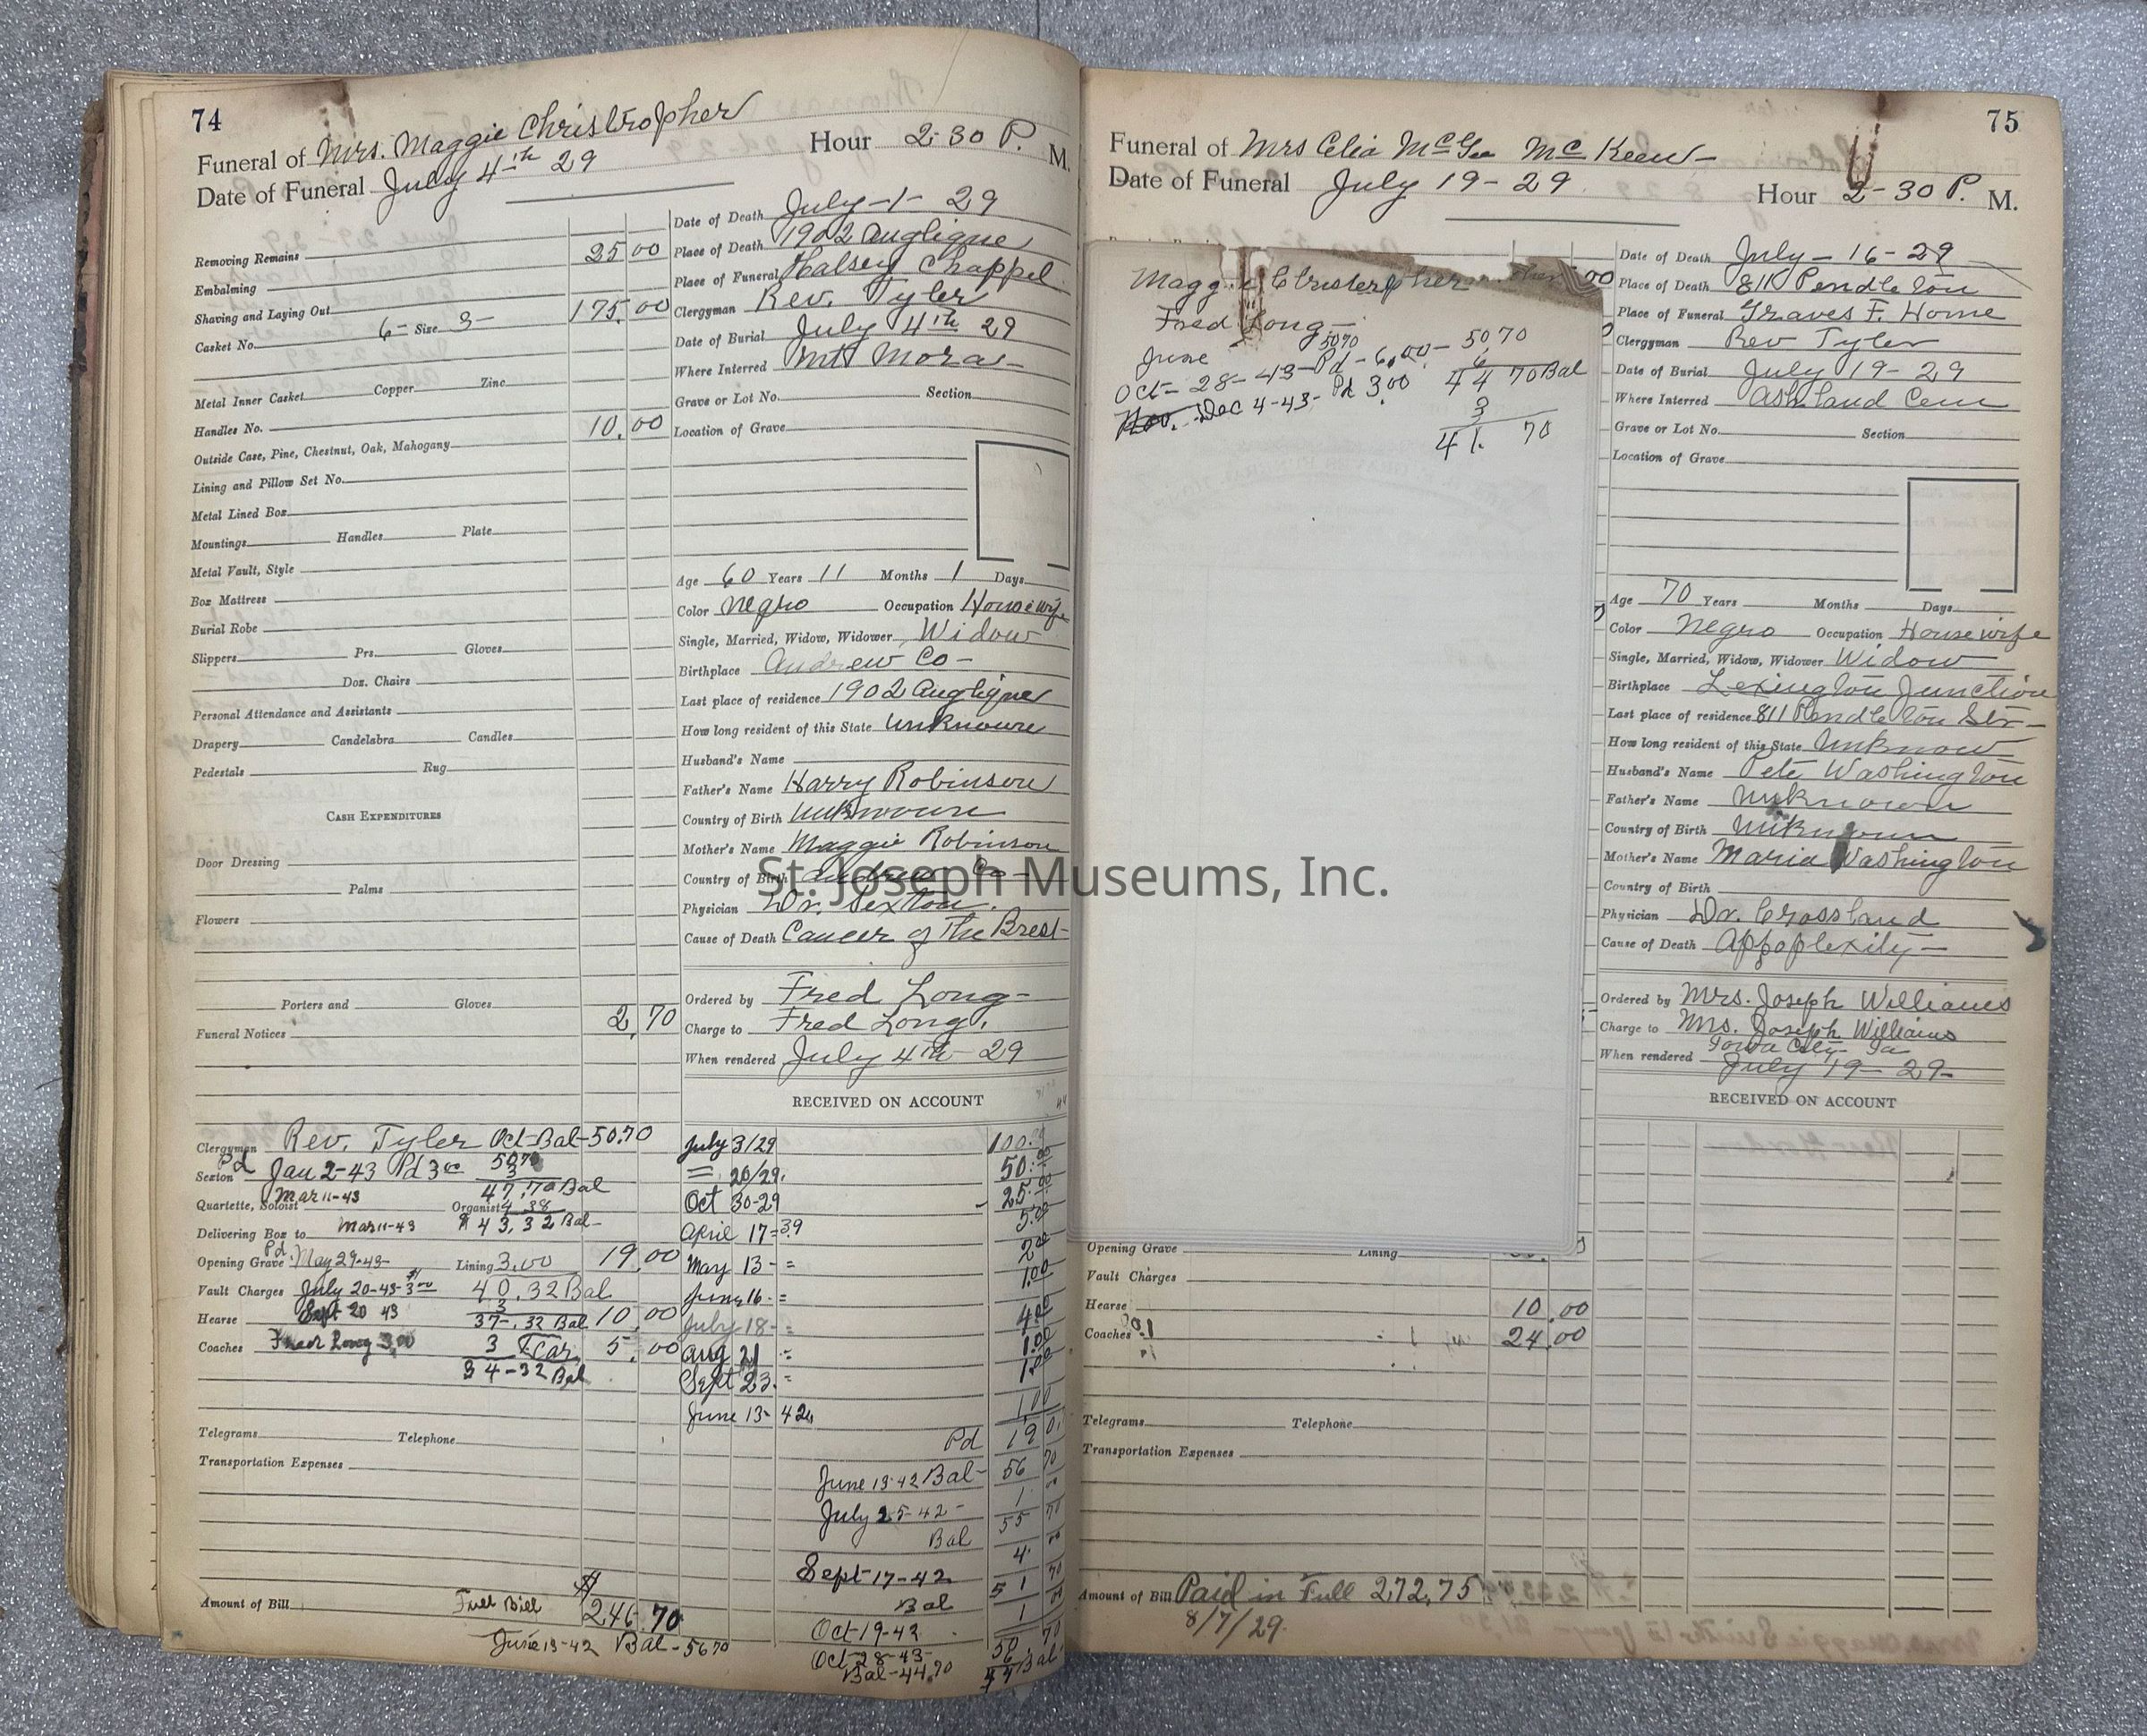 74
Funeral of Mrs. Maggie Christropher
Hour 2-30 P. M.
Date of Funeral July 4th 29
Removing Remains 25 00
Embalming
Shaving and Laying Out 175.00
Casket No. 6- Size 3-
Metal Inner Casket Copper Zinc
Handles No. 10.00
Outside Case, Pine, Chestnut, Oak, Mahogany
Lining and Pillow Set No.
Metal Lined Box
Mountings Handles Plate
Metal Vault, Style
Box Mattress
Burial Robe
Slippers Prs. Gloves
Doz. Chairs
Personal Attendance and Assistants
Drapery Candelabra Candles
Pedestals Rug
CASH EXPENDITURES
Door Dressing
Palms
Flowers
Porters and Gloves
Funeral Notices 2.70
Clergyman Rev. Tyler Oct-Bal-50.70
Sexton Pd Jan 2-43 Pd 3 00 5070
3
47.70 Bal
Quartette, Soloist Mar 11-43 Organist 4 38
Delivering Box to Mar 11-43 $43,32 Bal-
Opening Grave Pd. May 29-43- Lining 3.00 19.00
Vault Charges July 20-43-3 00 40.32 Bal
Sept 20 43 3
Hearse 37-.32 Bal 10.00
Coaches Fred Long 3,00 3 Car 5.00
34-32 Bal
Telegrams Telephone
Transportation Expenses
Amount of Bill Full Bill $246.70
June 13-42 Bal-5670
Date of Death July-1- 29
Place of Death 1902 Angligue
Place of Funeral Halsey Chappel
Clergyman Rev. Tyler
Date of Burial July 4th 29
Where Interred Mt Mora-
Grave or Lot No. Section
Location of Grave
Age 60 Years 11 Months 1 Days
Color Negro Occupation Housewife
Single, Married, Widow, Widower Widow
Birthplace Andrew Co-
Last place of residence 1902 Angligue
How long resident of this State unknown
Husband's Name
Father's Name Harry Robinson
Country of Birth Unknown
Mother's Name Maggie Robinson
Country of Birth Andrew Co-
Physician Dr. Sexton.
Cause of Death Cancer of The Brest-
Ordered by Fred Long-
Charge to Fred Long.
When rendered July 4th 29
RECEIVED ON ACCOUNT
July 3/29 100.00
= 20/29. 50.00
Oct 30-29 - 25.00
April 17=39 5.00
May 13- = 2.00
June 16- = 1.00
July 18- = 4.00
Aug 21 = 1.00
Sept 23. = 1.00
June 13- 42 1,00
Pd 190.
June 13-42 Bal- 56 70
July 25-42- 1 00
Bal 55 70
Sept-17-42 4 00
Bal 51 70
Oct-19-42 1 00
50 70
Oct-28-43-
Bal-44.70
75
Funeral of Mrs Celia McGee McKeew-
Date of Funeral July 19-29 Hour 2-30 P. M.
Maggie Christerpher
Fred Long-
June 5070 Pd-6,00- 5070
6
Oct-28-43- Pd 3 00 44 70 Bal
Nov. Dec 4-43- 3
41. 70
Date of Death July-16-29
Place of Death 811 Pendleton
Place of Funeral Graves F. Home
Clergyman Rev Tyler
Date of Burial July 19-29
Where Interred Ashland Cem
Grave or Lot No. Section
Location of Grave
Age 70 Years Months Days
Color Negro Occupation Housewife
Single, Married, Widow, Widower Widow
Birthplace Lexington Junction
Last place of residence 811 Pendleton Str-
How long resident of this State Unknow
Husband's Name Pete Washington
Father's Name Unknown
Country of Birth Unknown
Mother's Name Maria Washington
Country of Birth
Physician Dr. Crossland
Cause of Death Appoplexity-
Ordered by Mrs. Joseph Williams
Charge to Mrs. Joseph Williams
Iowa City Ia
When rendered July 19-29-
RECEIVED ON ACCOUNT
Opening Grave Lining
Vault Charges
Hearse 10.00
Coaches 24.00
Telegrams Telephone
Transportation Expenses
Amount of Bill Paid in Full 272,75
8/7/29
St. Joseph Museums, Inc.